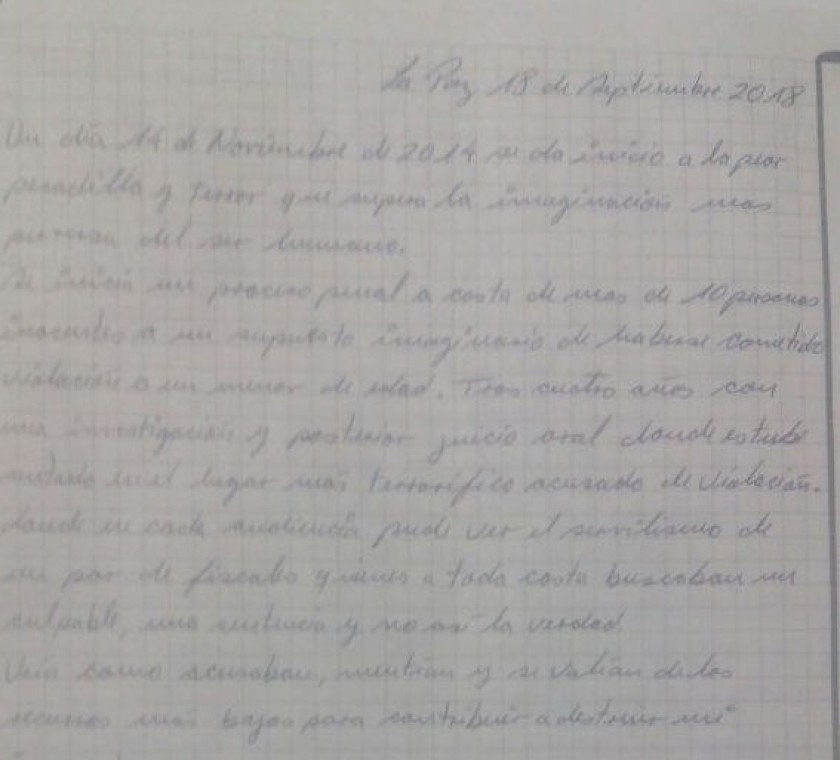 La Paz 18 de Septiembre 2018
Un día 14 de Noviembre de 2014 se da inicio a la peor
pesadilla y terror que supera la imaginación mas
perversa del ser humano.
Se inicia un proceso penal a costa de mas de 10 personas
inocentes a un supuesto imaginario de haberse cometido
violación a un menor de edad. Tras cuatro años con
una investigación y posterior juicio oral donde estube
sentado en el lugar más terrorífico acusado de violación.
donde en cada audiencia pude ver el servilismo de
un par de fiscales quienes a toda costa buscaban un
culpable, una sentencia y no así la verdad.
Veía como acusaban, mentían y se valían de los
recursos más bajos para contribuir a destruir mi